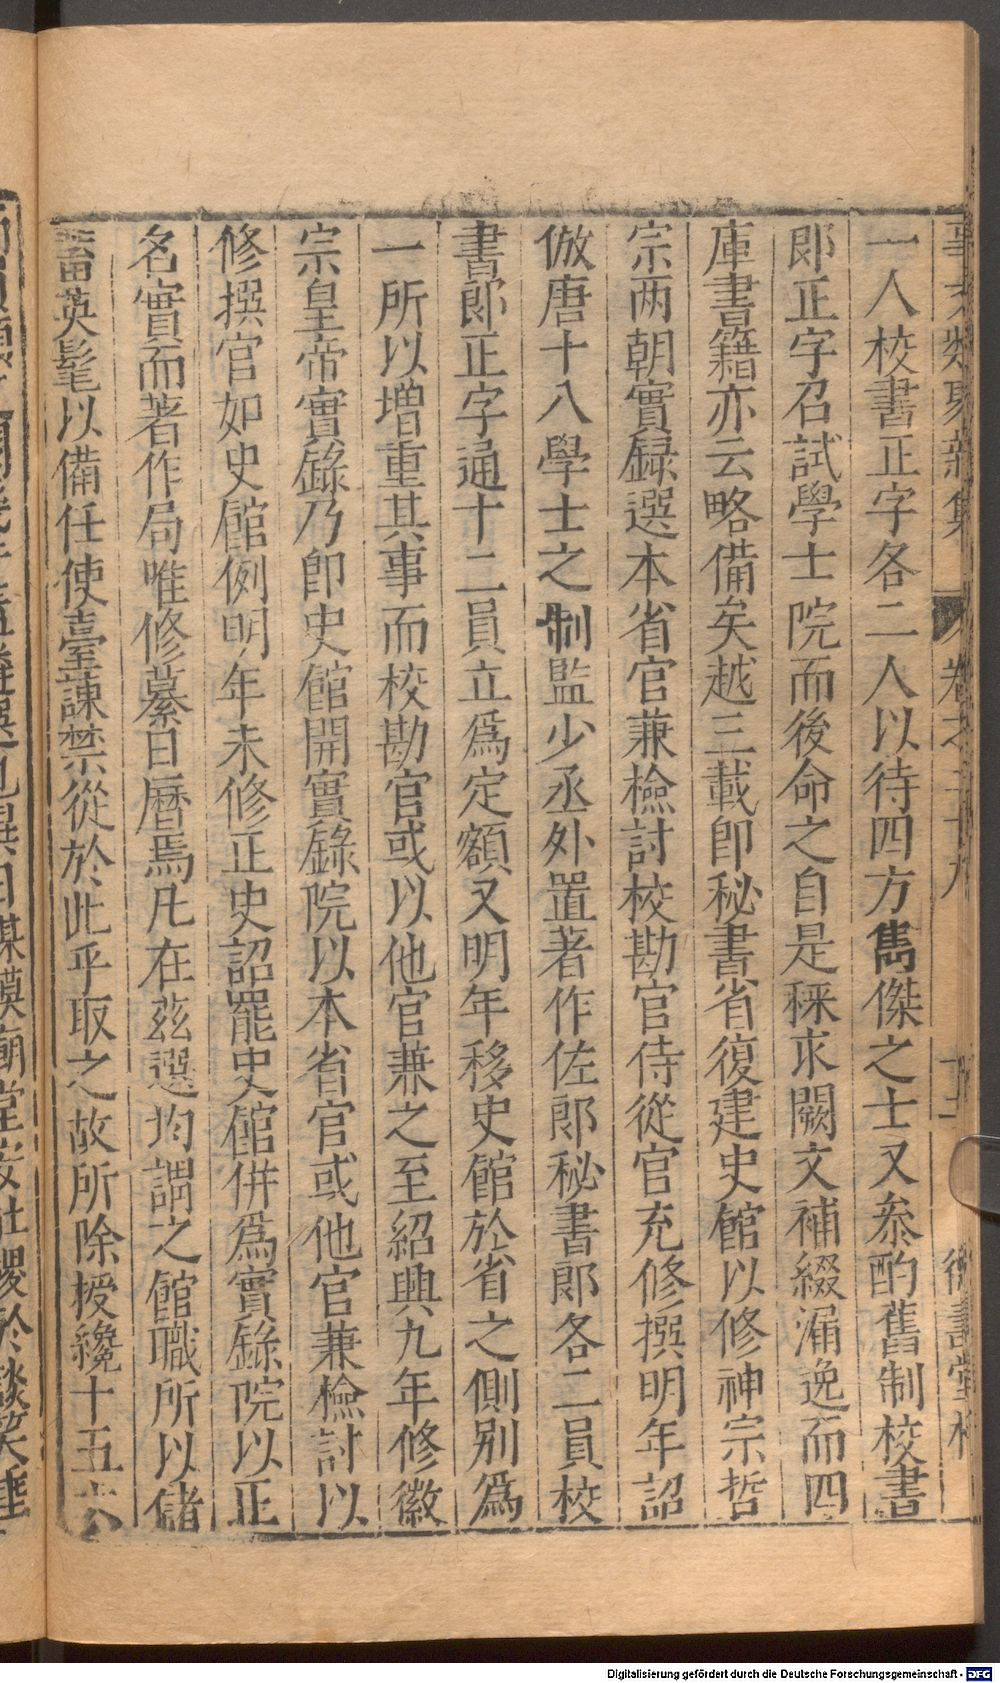 事文類聚新集 卷之二十九
一人校書正字各二人以待四方雋傑之士又叅酌舊制校書
郎正字召試學士院而後命之自是稞求闕文補綴漏逸而四
庫書籍亦云略備矣越三載即秘書省復建史館以修神宗哲
宗两朝實録選本省官兼檢討校勘官侍從官充修撰明年詔
倣唐十八學士之制監少丞外置著作佐郎秘書郎各二員校
書郎正字通十二員立爲定額又明年移史館於省之側别爲
一所以增重其事而校勘官或以他官兼之至紹興九年修徽
宗皇帝實錄乃即史館開實錄院以本省官或他官兼檢討以
修撰官如史館例明年未修正史詔罷史館併爲實錄院以正
名實而著作局唯修纂日曆焉凡在兹選均謂之館職所以儲
蓄英髦以備任使臺諫禁從於此乎取之故所除授纔十五六
Digitalisierung gefördert durch die Deutsche Forschungsgemeinschaft - DFG